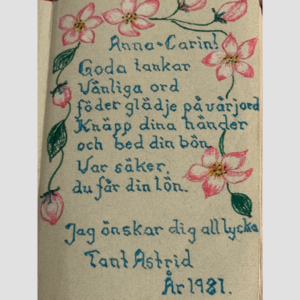 Anna-Carin!
Goda tankar
Vänliga ord
föder glädje på vår jord
Knäpp dina händer
och bed din bön.
Var säker,
du får din lön.
Jag önskar dig all lycka
Tant Astrid
År 1981.